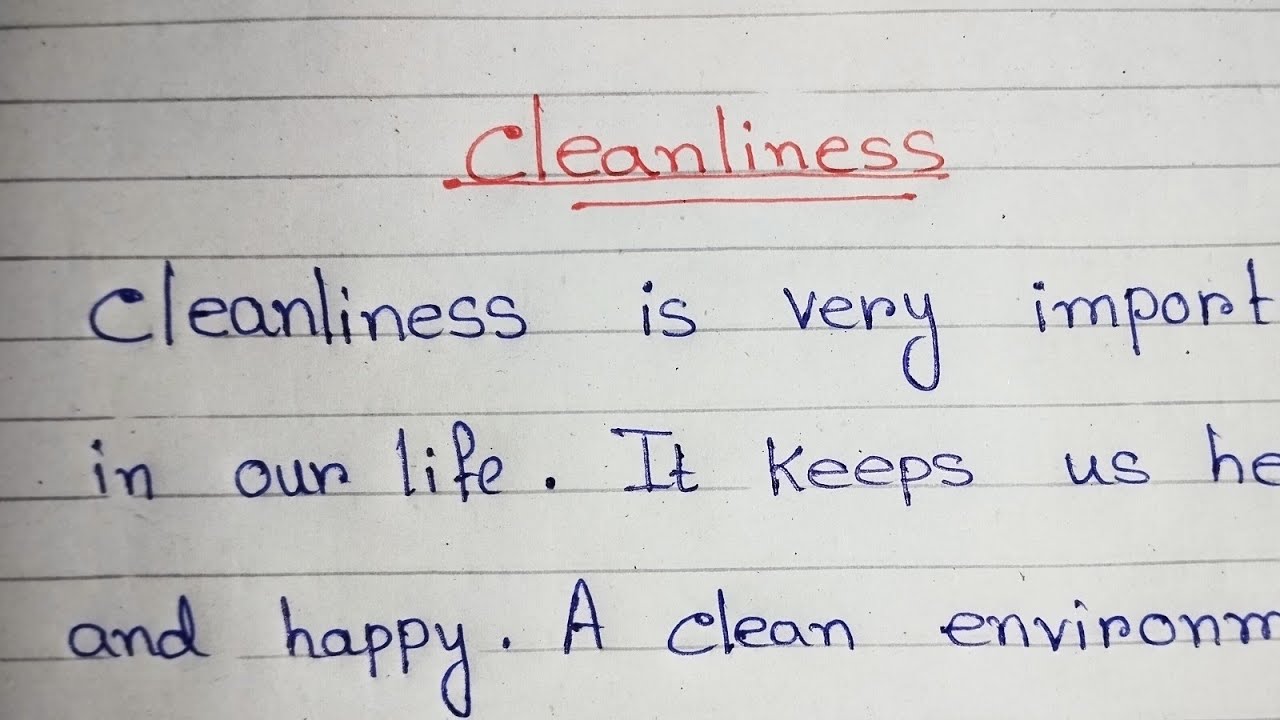 Cleanliness
Cleanliness is very import
in our life. It keeps us he
and happy. A clean environm